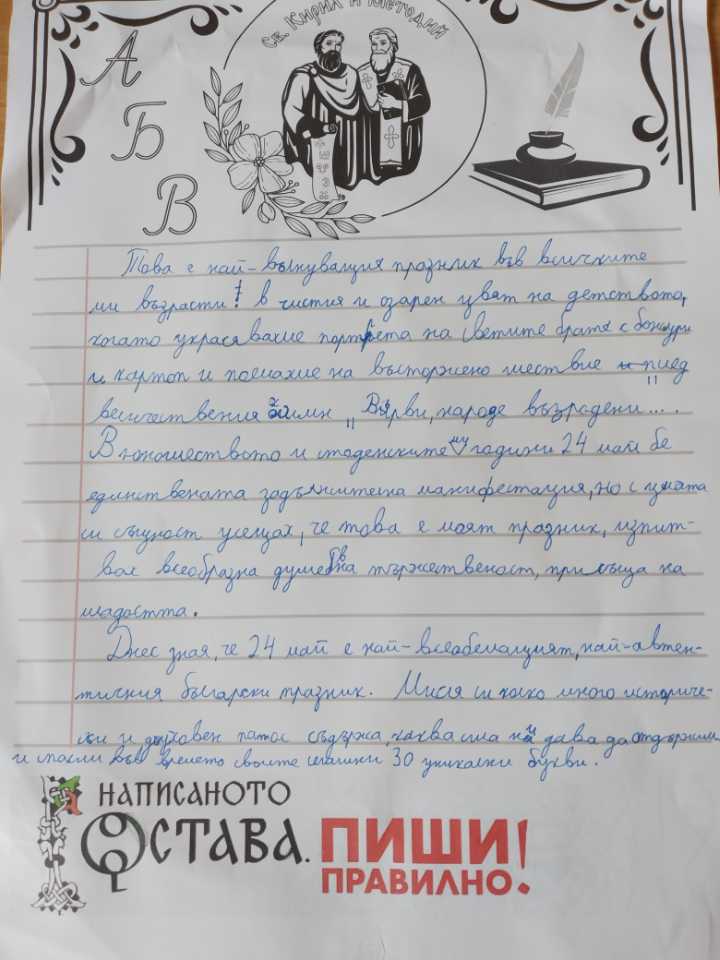 А
Б
В
СВ. КИРИЛ И МЕТОДИЙ
Това е най-вълнуващия празник във всичките
ми възрасти! в чистия и озарен цвят на детството,
когато украсявахме портрета на светите братя с божури
и картон и поемахме на възторжено шествие под
величествения химн „Върви, народе възродени...
В юношеството и студенските му години 24 май бе
единствената задължителна манифестация, но с цялата
си същност усещах, че това е моят празник, изпит-
вах всеобразна душевна тържественост, присъща на
младостта.
Днес зная, че 24 май е най-всеобемащият, най-автен-
тичния български празник. Мисля си колко много историче-
ски и духовен патос съдържа, каква сила ни дава да отдържим
и такли във времето своите 30 уникални букви.
НАПИСАНОТО
ОСТАВА. ПИШИ!
ПРАВИЛНО.